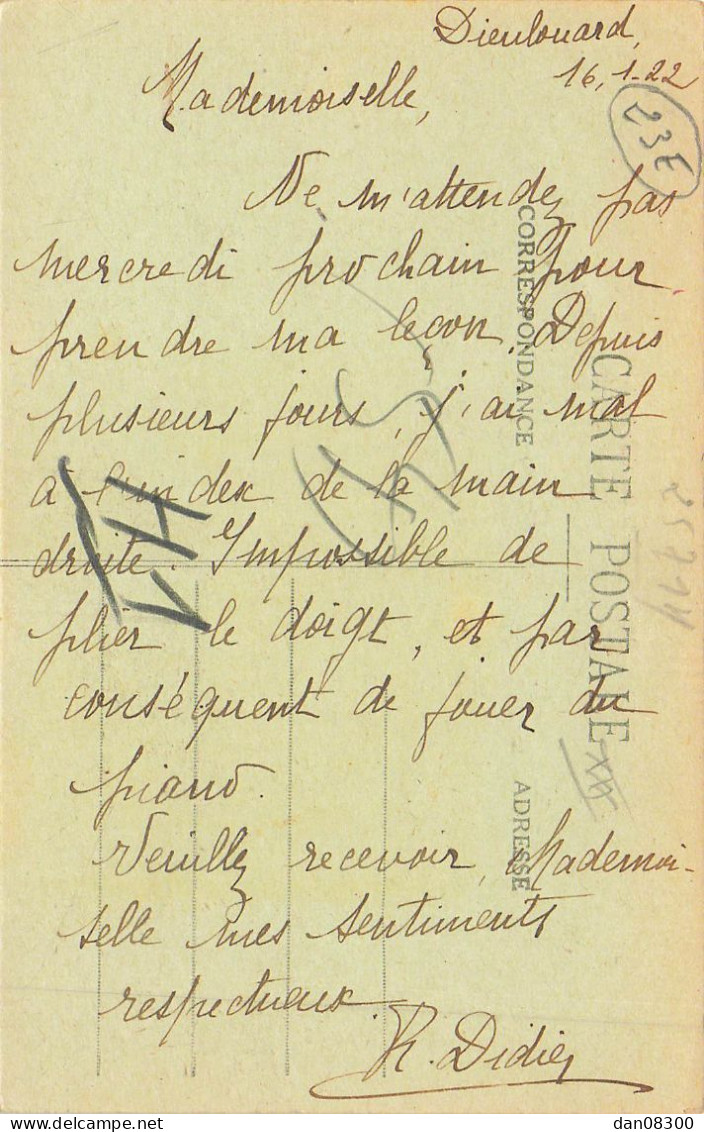 Dieulouard,
16, 1-22
Mademoiselle,
23E
Ne m'attendez pas
mercredi prochain pour
prendre ma leçon. Depuis
plusieurs jours, j'ai mal
à l'index de la main
droite. Impossible de
plier le doigt, et par
conséquent de jouer du
piano.
Veuillez recevoir, Mademoi-
selle mes sentiments
respectueux
R. Didier
CORRESPONDANCE
CARTE POSTALE
ADRESSE
delcampe.net
dan08300